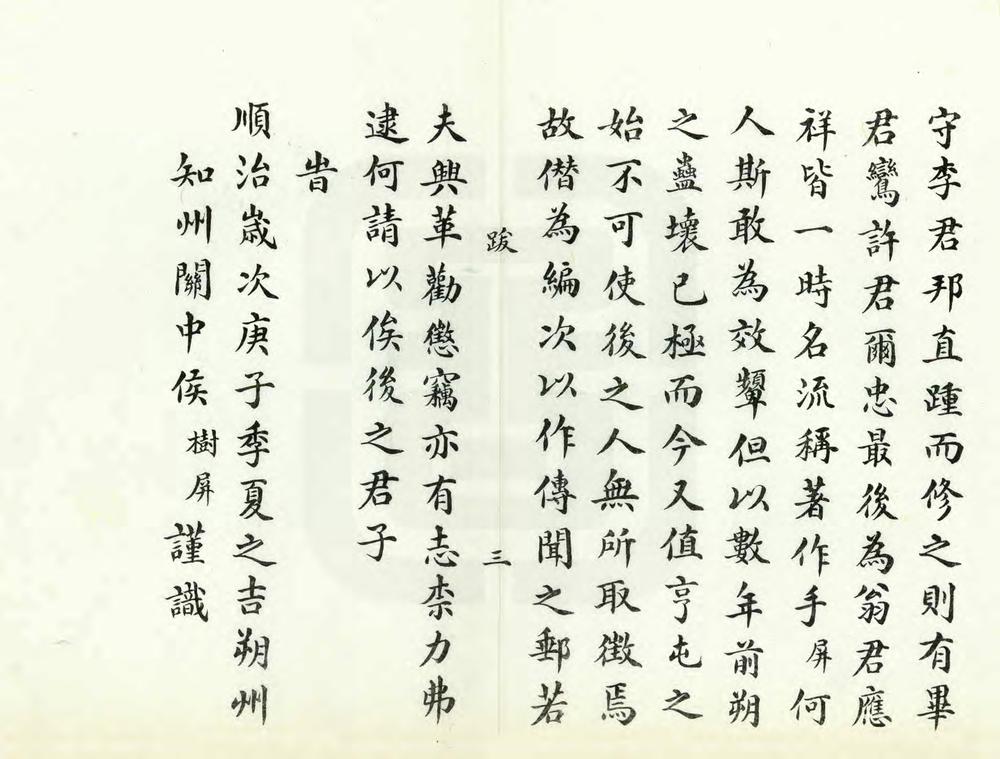 守李君邦直踵而修之則有畢
君鸞許君爾忠最後為翁君應
祥皆一時名流稱著作手屏何
人斯敢為效顰但以數年前朔
之蠱壞已極而今又值亨屯之
始不可使後之人無所取徵焉
故僭為編次以作傳聞之郵若
跋 三
夫興革勸懲竊亦有志柰力弗
逮何請以俟後之君子
旹
順治歲次庚子季夏之吉朔州
知州關中侯樹屏謹識